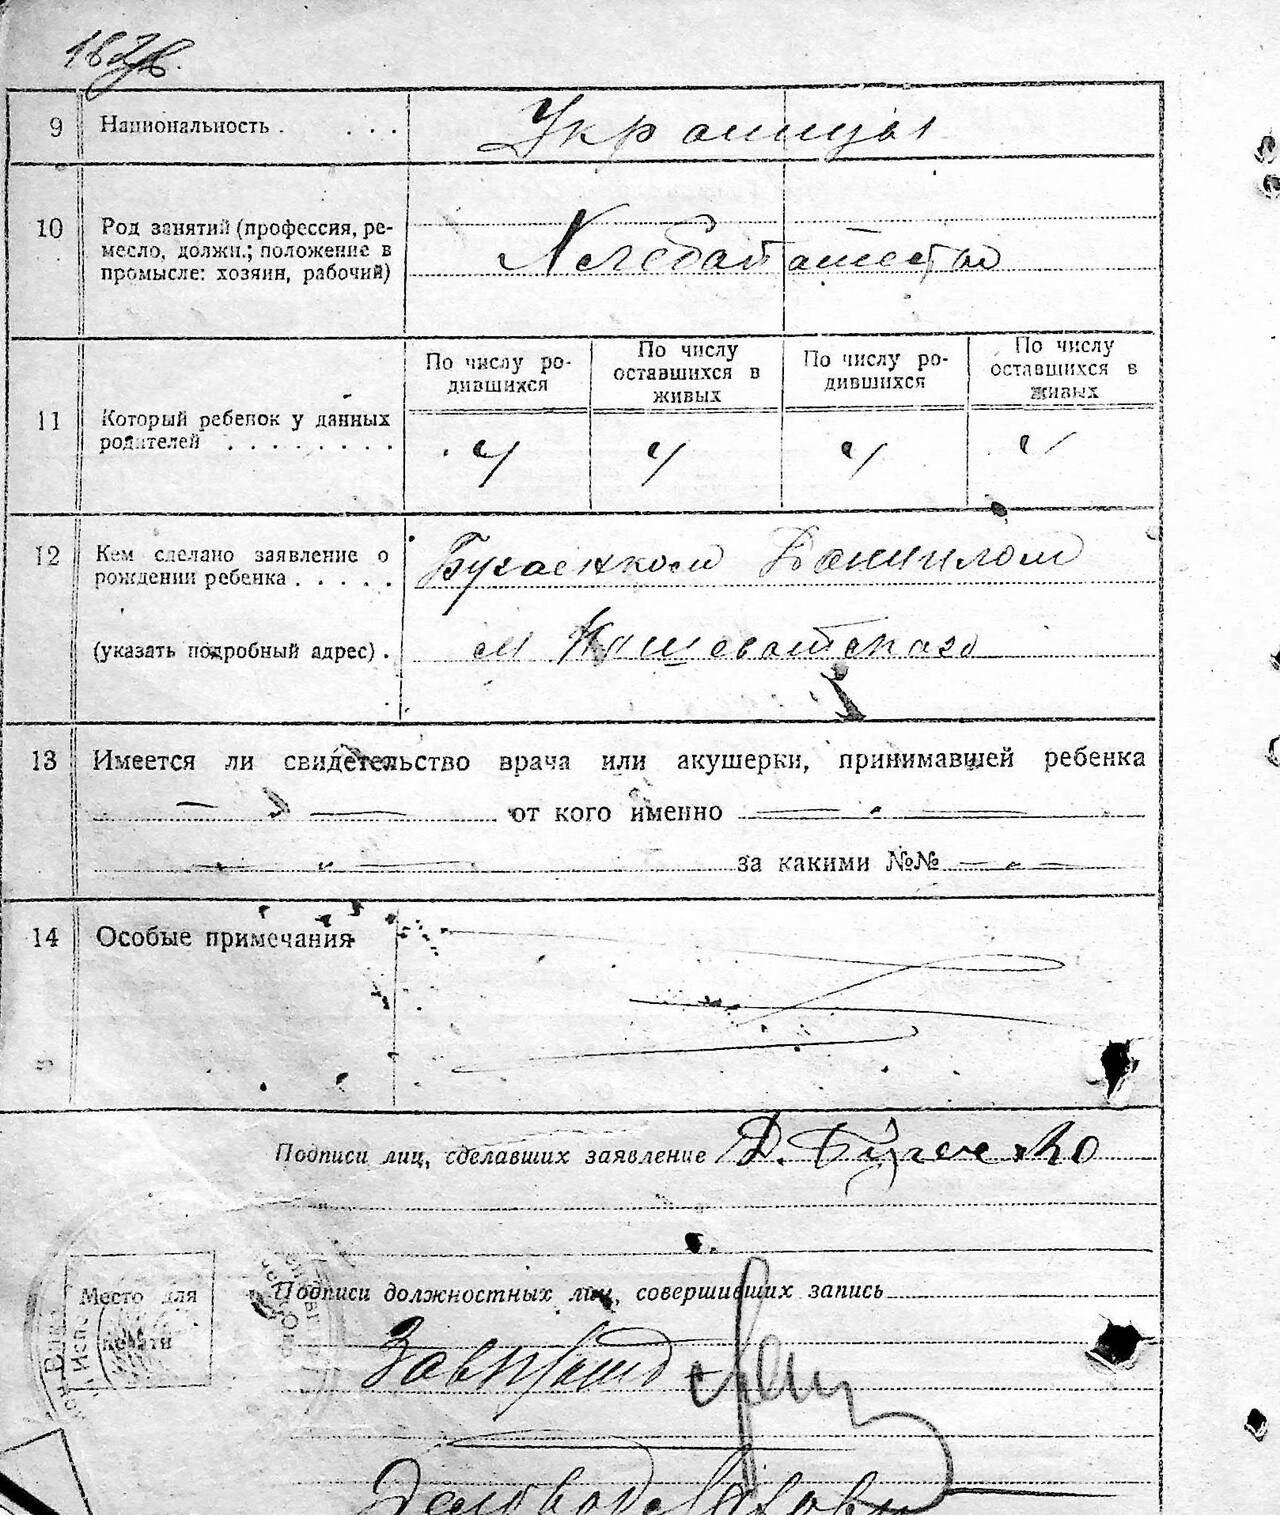 182 об.
9 Национальность . . . . Украинцы
10 Род занятий (профессия, ре-
месло, должн.; положение в
промысле: хозяин, рабочий) Хлебопашество
По числу ро-
дившихся
По числу
оставшихся в
живых
По числу ро-
дившихся
По числу
оставшихся в
живых
11 Который ребенок у данных
родителей . . . . . . . . 4 4 4 4
12 Кем сделано заявление о
рождении ребенка . . . . . Бугаенком Данилом
(указать подробный адрес) . м
13 Имеется ли свидетельство врача или акушерки, принимавшей ребенка
— " — от кого именно — " —
— " — за какими №№ — " —
14 Особые примечания
Подписи лиц, сделавших заявление Д.
Подписи должностных лиц, совершивших запись
Место для
печати